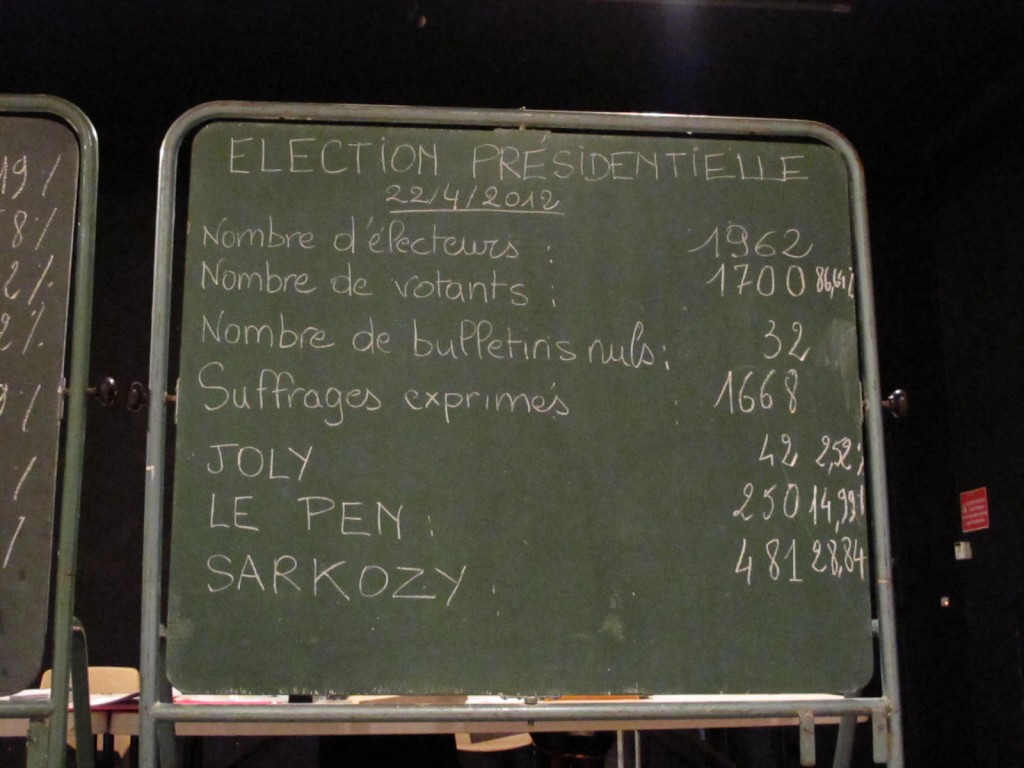 19%
8%
2%
2%
9%
ELECTION PRÉSIDENTIELLE
22/4/2012
Nombre d'électeurs : 1962
Nombre de votants : 1700 86,64%
Nombre de bulletins nuls : 32
Suffrages exprimés : 1668
JOLY 42 2,52%
LE PEN : 250 14,99%
SARKOZY : 481 28,84